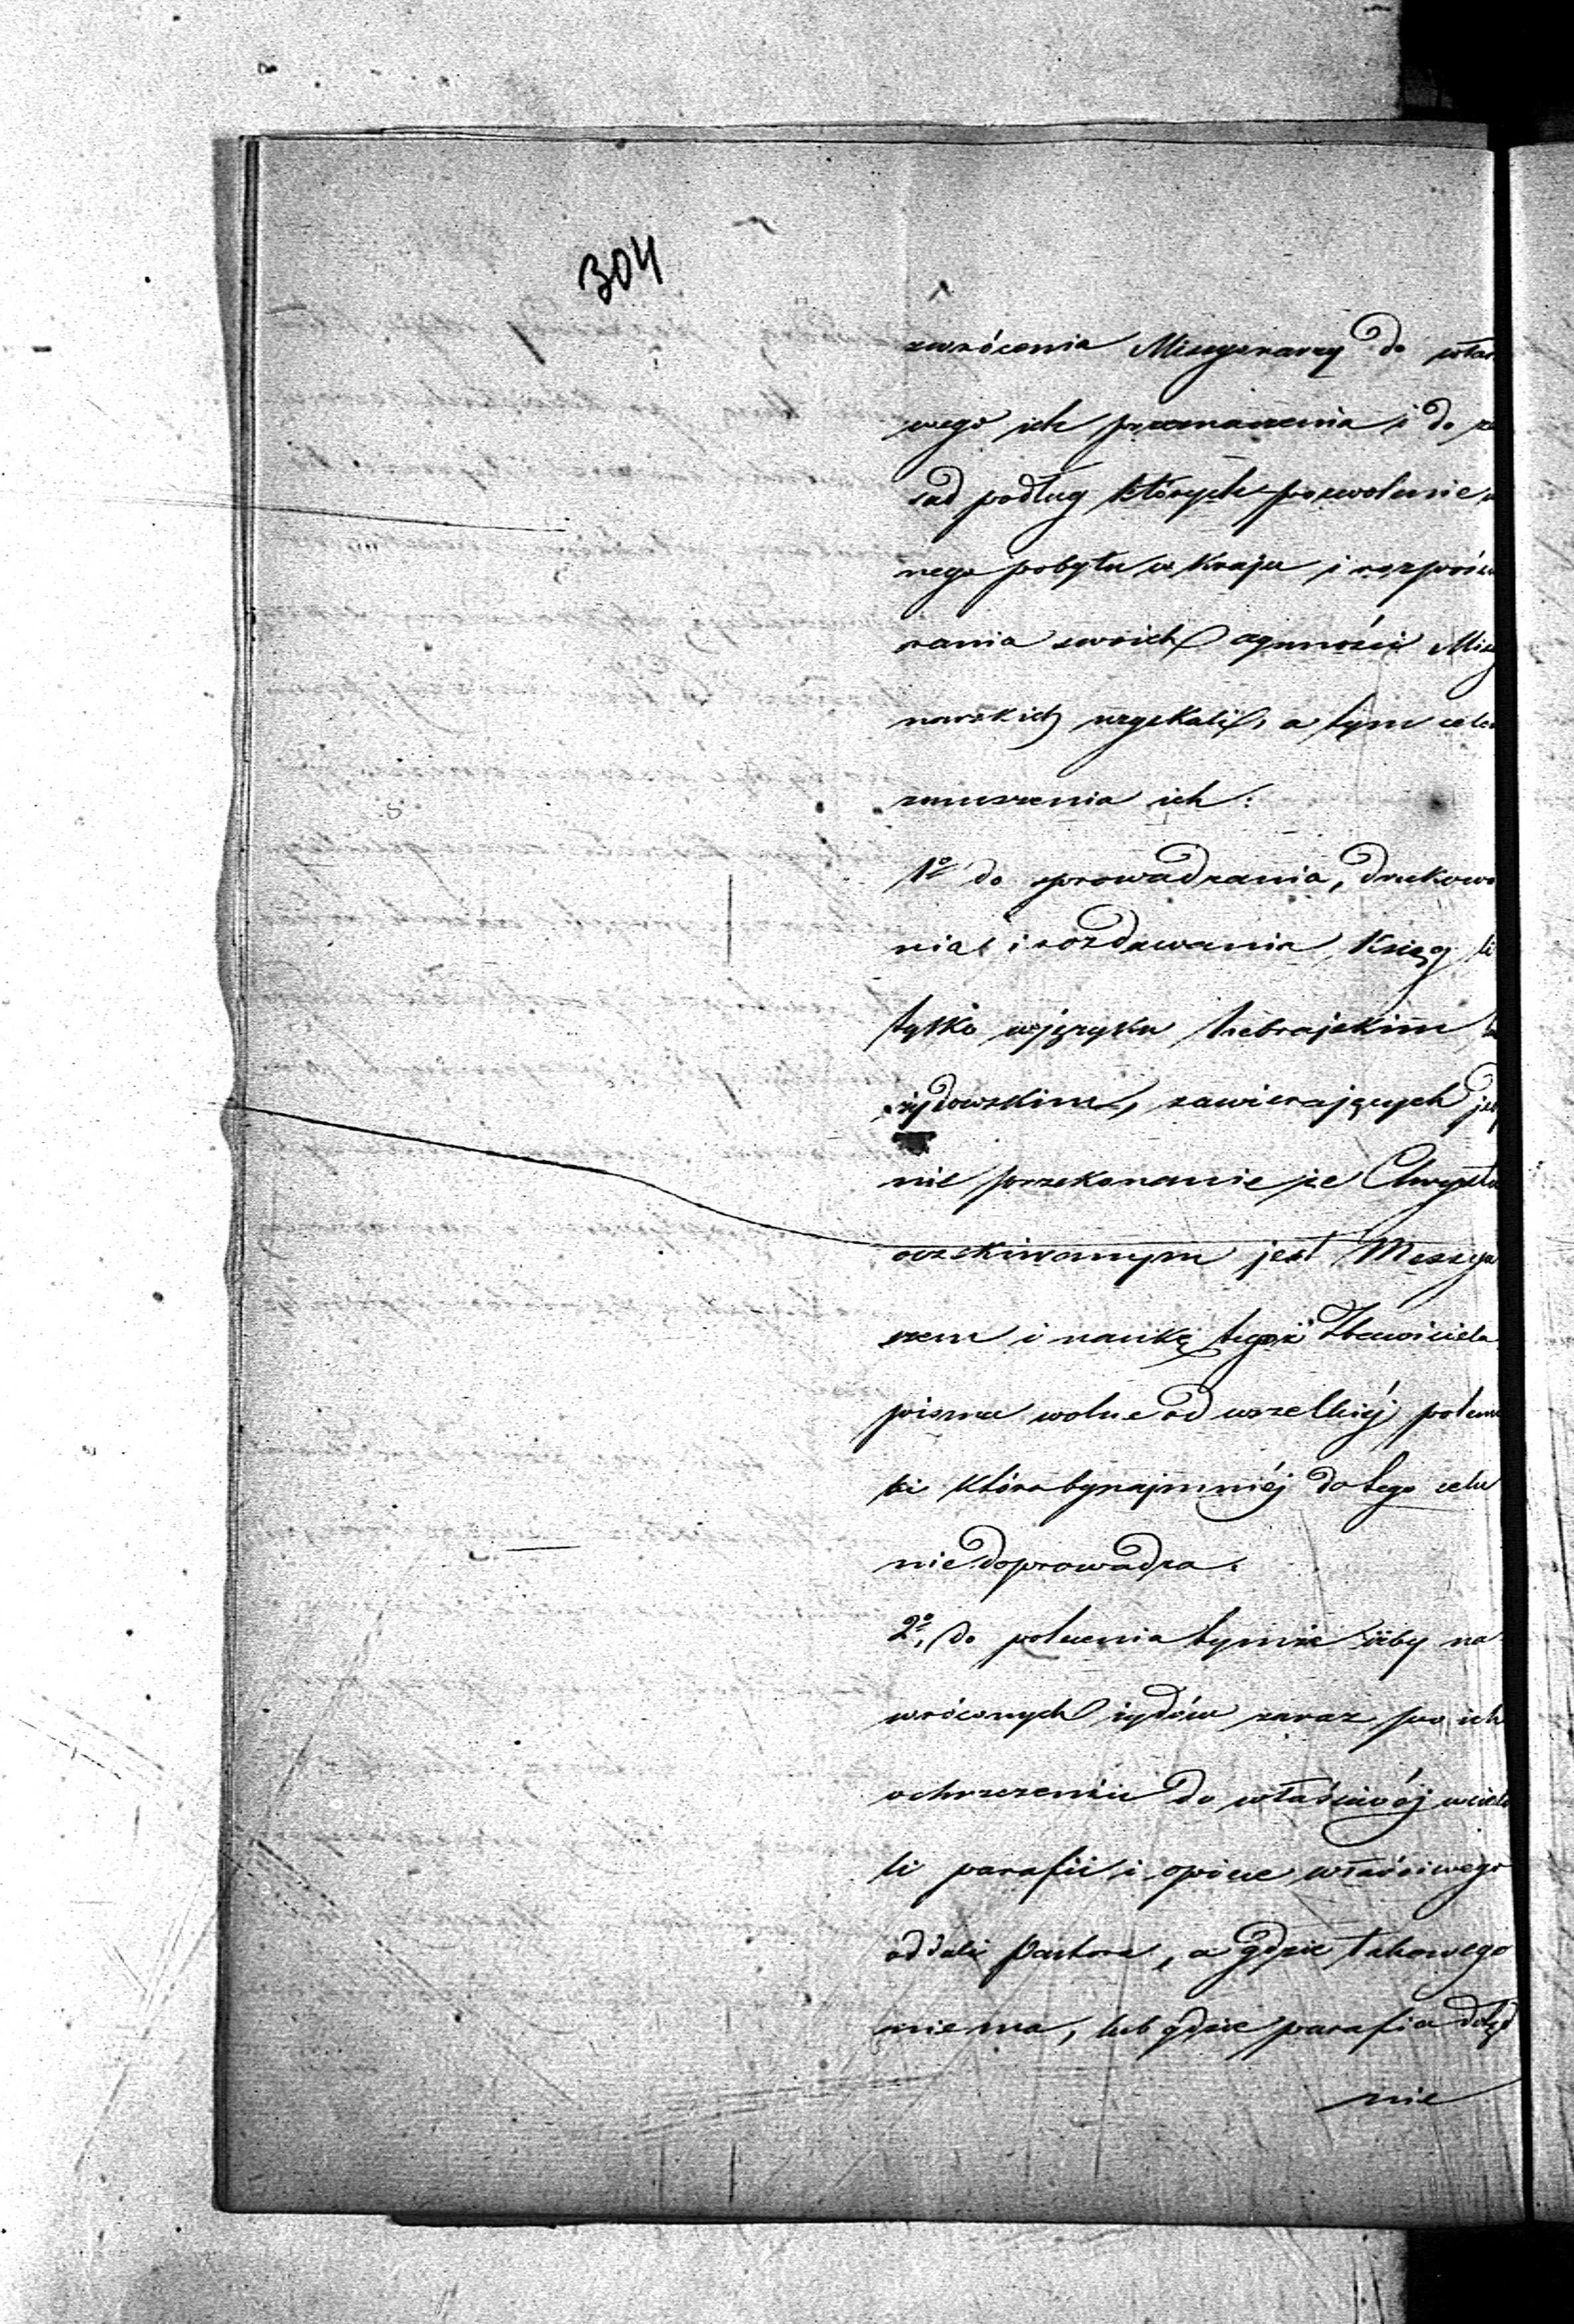 304
zwrócenia Missyonarzy do właś
wego ich przeznaczenia i do za
sad podług których pozwolenie w
nego pobytu w Kraju i rozpośc
rania swoich czynności Missy
narskich uzyskali, a tym celem
zmuszenia ich:
1º do sprowadzania, drukowa
nia i rozdawania Ksiąg li
tylko w języku hebrajskim
żydowskim, zawierających jedy
nie przekonanie że Chrystus
oczekiwanym jest Messya
szem i naukę tegoż Zbawiciela
pisma wolne od wszelkiéj polem
ki która bynajmniéj do tego celu
nie doprowadza.
2º, do polecenia tymże żeby na
wróconych żydów zaraz po ich
ochrzczeniu do właściwéj wciela
li parafii i opiece właściwego
oddali Pastora, a gdzie takowego
niema, lub gdzie parafia dotąd
nie